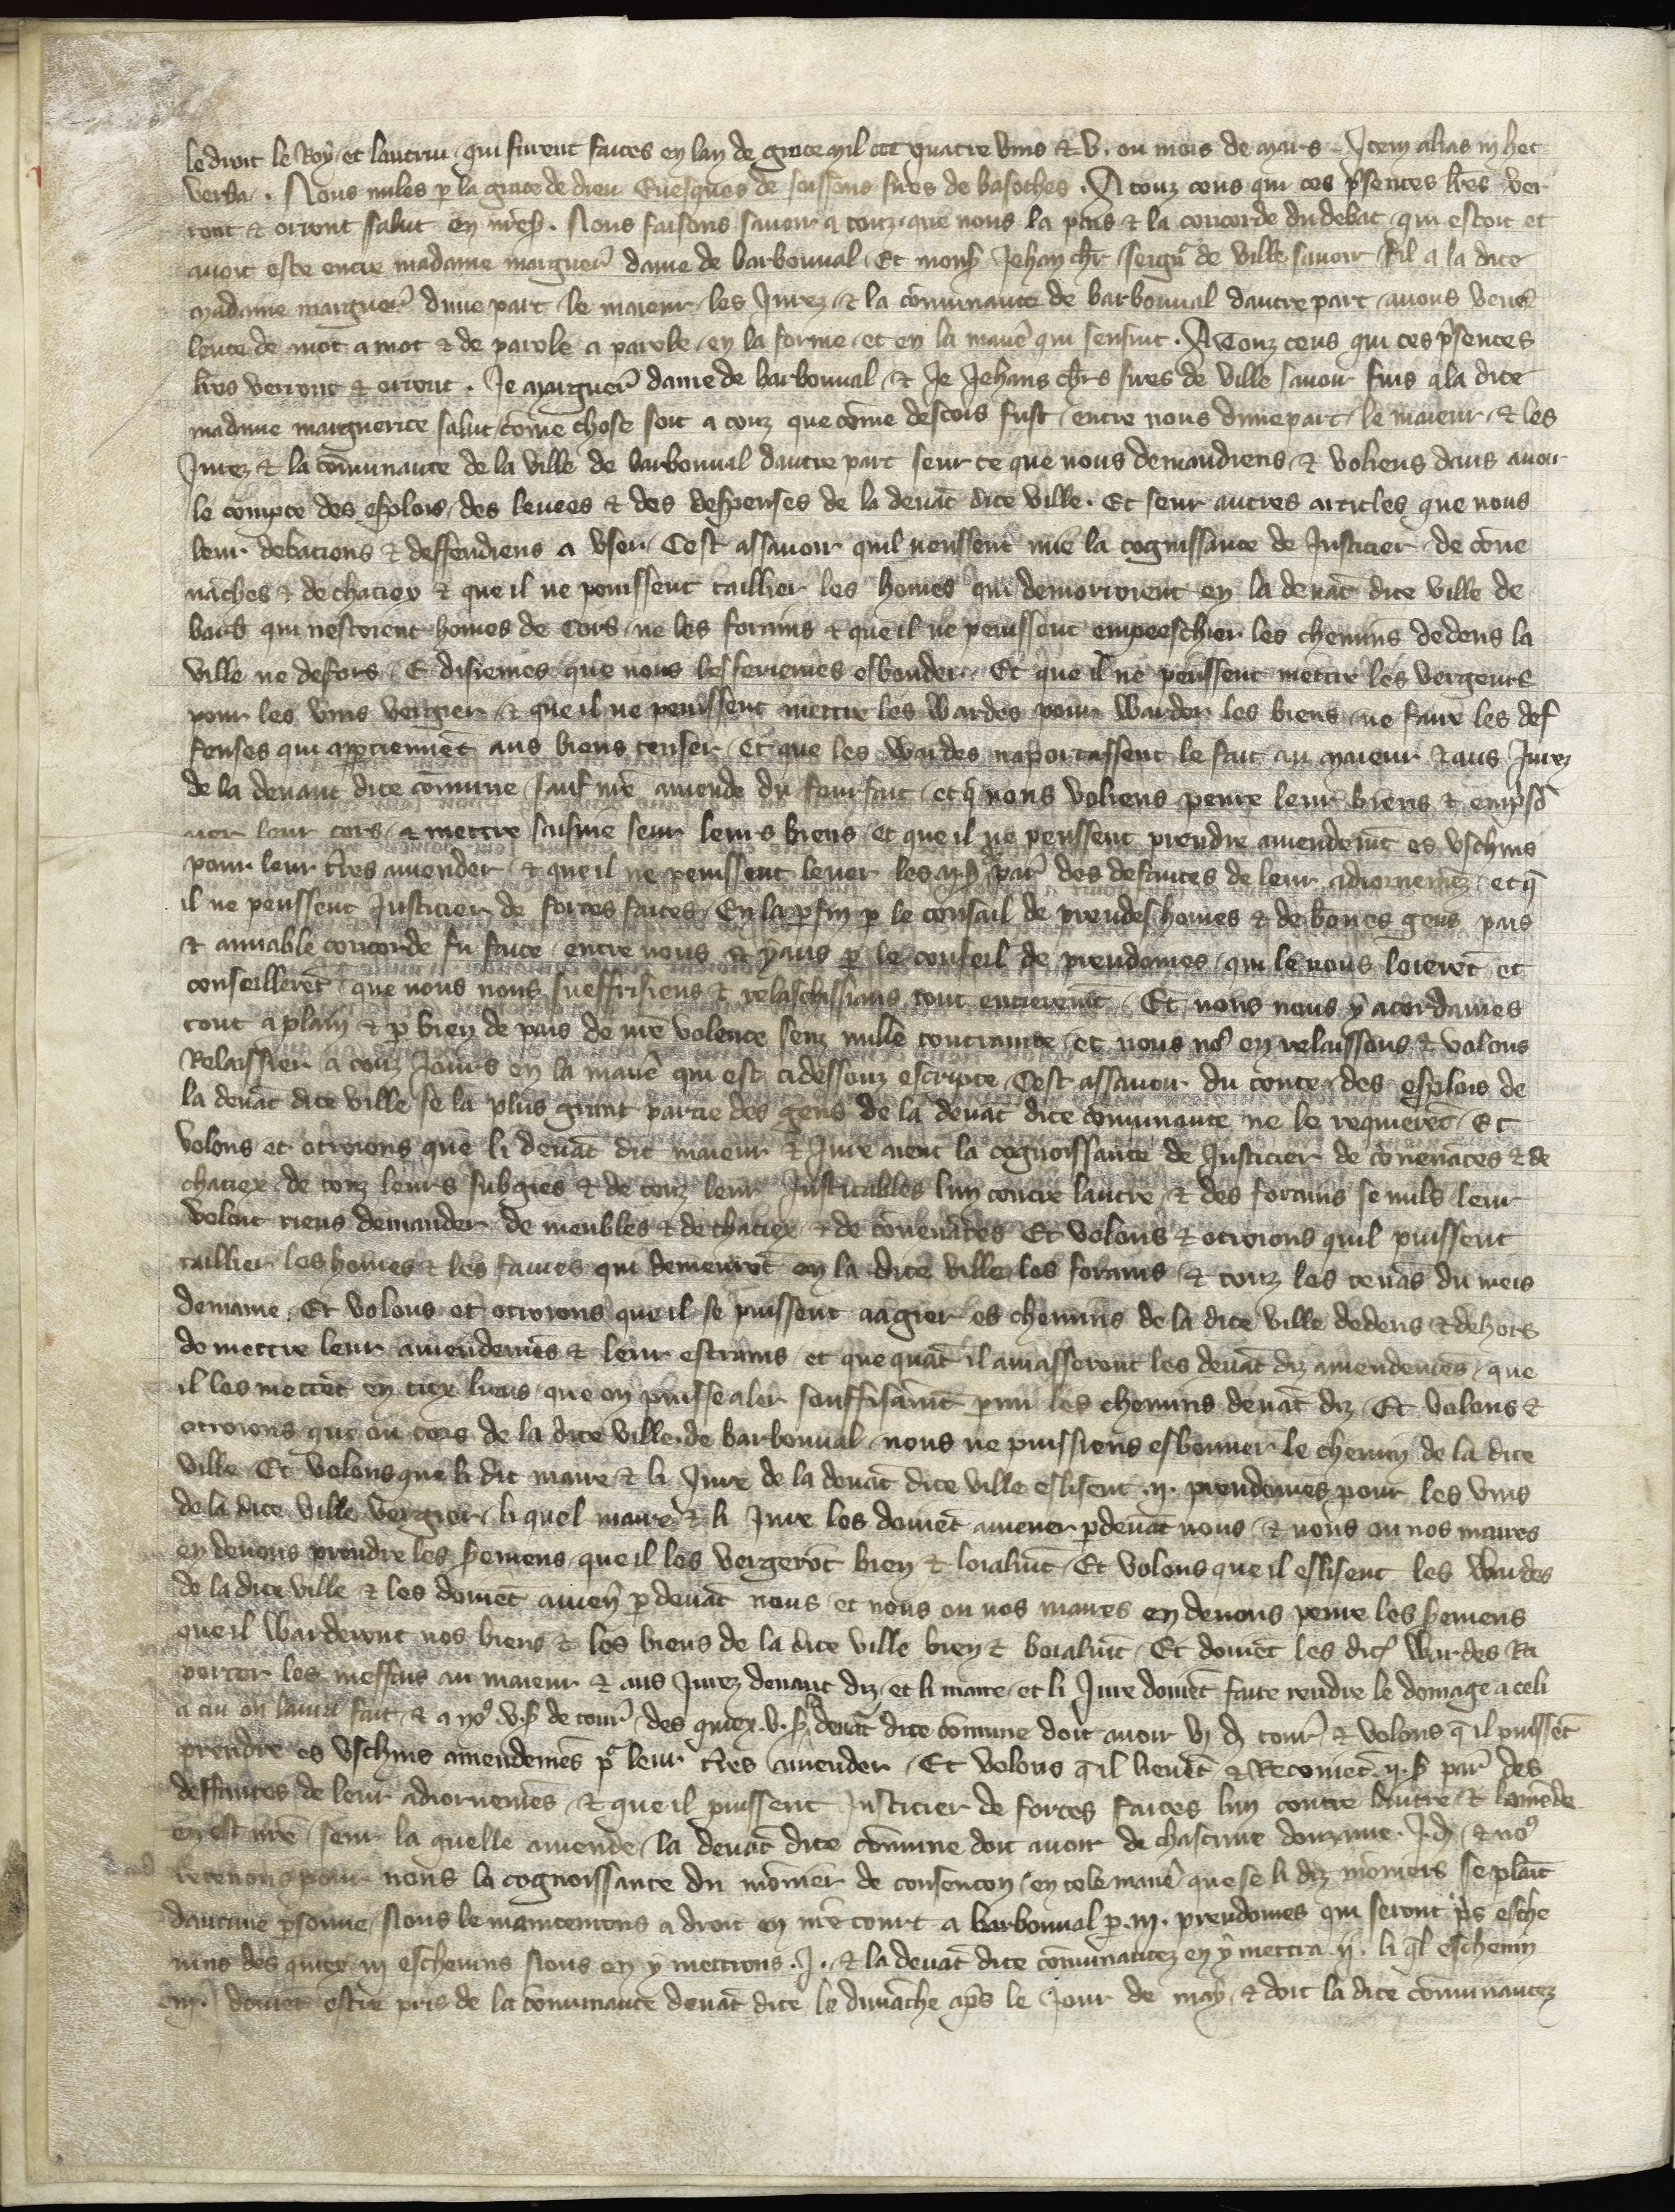 le droit le Roy et lautrui qui furent faites en lan de grace mil ccc quatre vins & v. ou mois de mars. Item alias in hec
verba. Nous miles p la grace de dieu Euesques de soissons sires de basoches. A touz ceus qui ces p̃sentes lr̃es ver
ront & orront salut en nr̃e s̃. Nous faisons sauoir a touz que nous la pais & la concorde du debat qui estoit et
auoit este entre madame marguer̃ dame de barbonual Et mons̃ Jehan chr̃ seignr̃ de ville sauoir fil a la dite
madame marguer̃ dune part le maieur les Jurez & la cõmunaute de barbonual dautre part auons veue
leute de mot a mot & de parole a parole en la forme et en la manẽ qui sensuit. A Touz ceus qui ces p̃sentes
lr̃es verront & orront. Je marguer̃ dame de barbonual & Je Jehans chr̃s sires de ville sauoir fuis a la dite
madame marguerite salut cõme chose soit a touz que cõme descors fust entre nous dune part le maieur & les
Jurez & la cõmunaute de la ville de barbonual dautre part seur ce que nous demandiens & voliens daus auoir
le compte des esplois des leuees & des despenses de la deuãt dite ville. Et seur autres articles que nous
leur debations & deffendiens a vser Cest assauoir quil neussent mie la cognissance de Justicier de cõue
nãches & de chatiex & que il ne peuissent taillier les homes qui demorroient en la deuãt dite ville de
barb̃ qui nestoient homes de Cors ne les forains & que il ne peuissent empeeschier les chemins dedens la
ville ne defors & disiemes que nous les feriemes esbonder Et que il ne peussent mettre les vergeurs
pour les vins vergier & que il ne peuissent mettre les Wardes pour Warder les biens ne faire les def
fenses qui apartienn̄et aus biens tenser Et que les Wardes naportassent le fait au maieur & aus Jurez
de la deuant dite cõmune sauf nr̃e amende du fourfait et q̃ nous voliens penre leur biens & emp̃so
ner leur cors & mettre saisine seur leurs biens et que il ne peussent prendre amendem̃t es vschins
pour leur tr̃es amender & que il ne peuissent leuer les .ii. s̃ par̃ des defautes de leur adiornemẽz et q̃
il ne peussent Justicier de forces faites En la p̃fin p̃ le consail de preudes homes & de bones gens pais
& amiable concorde fu faite entre nous & yaus p̃ le conseil de preudomes qui le nous loerẽt et
conseillerẽt que nous nous sueffrisiens & relaschissiens tout entierem̃t Et nous nous y acordames
tout a plain & p̃ bien de pais de nr̃e volente senz nulle contrainte et nous no9 en relaissons & volons
Relaissier a touz Jours en la manẽ qui est cidessouz escripte Cest assauoir du conte des esplois de
la deuãt dite ville se la plus grant partie des gens de la deuãt dite cõmunaute ne le requierẽt Et
volons et otroions que li deuãt dit maieur & Jure aient la cognoissance de Justicier de cõuenãces & de
chatiex de touz leurs subgies & de touz leur Justicables lun contre lautre & des forains se nuls leur
voloit riens demander de meubles & de chatiex & de cõuenãces Et volons & otroions quil puissent
taillier les homes & les fames qui demeurẽt en la dite ville les forains & touz les tenãs du meis
demaine. Et volons et otroions que il se puissent aagier es chemins de la dite ville dedens & dehors
de mettre leur amendemẽs & leur estrains et que quãt il amasseront les deuãt diz amendemẽs que
il les mettẽt en tiex lieus que on puisse aler souffisãm̃t parmi les chemins deuãt diz Et volons &
otroions que ou cors de la dite ville de barbonual nous ne puissiens esbonner le chemin de la dite
ville Et volons que li dit maire & li Jure de la deuãt dite ville eslisent .ii. preudomes pour les vins
de la dite ville vergier li quel maire & li Jure les doiuẽt amener p̃deuãt nous & nous ou nos maires
en deuons prendre les s̃emens que il les vergerõt bien & loialm̃t Et volons que il eslisent les Wardes
de la dite ville & les doiuẽt amen̄ p̃deuãt nous et nous ou nos maires en deuons penre les s̃emens
que il Warderont nos biens & les biens de la dite ville bien & loialm̃t Et doiuẽt les dites Wardes Ra
porter les meffais au maieur & aus Jurez deuant diz et li maire et li Jure doiuẽt faire rendre le domage a celi
a cui on laura fait & a no9 .v. s̃ de tour̃ des quiex .v. s̃ la deuãt dite cõmune doit auoir vi d̃ tour̃ & volons q̃ il puissẽt
prendre es vschins amendemẽs pr̃ leur tr̃es amender Et volons q̃ il lieuẽt & Recoiuẽt .ii. s̃ par̃ des
deffautes de leur adiornemẽs & que il puissent Justicier de forces faites lun contre lautre & lamẽde
en est nr̃e seur la quelle amende la deuãt dite cõmune doit auoir de chascune douzaine .I. d̃ & no9
retenons pour nous la cognoissance du monier de en tele manẽ que se li diz moniers se plaīt
daucune p̃sonne Nous le maintenrons a droit en nr̃e court a barbonual p̃ .iii. preudomes qui seront p̃s esche
uins des quiex iii escheuins Nous en y mettrons .I. & la deuãt dite cõmunautez en y mettra .ii. li q̃l escheuin
.iii. doiuẽt estre pris de la cõmunaute deuãt dite le dimãche ap̃s le Jour de may & doit la dite cõmunautez